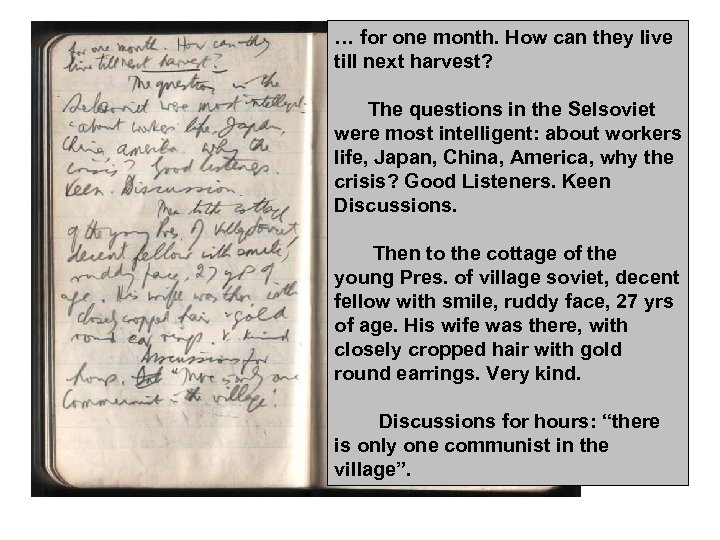 for one month. How can they
live till next harvest?
The questions in the
Selsoviet were most intelligent:
about workers life, Japan,
China, America, why the
crisis? Good listeners.
Keen Discussion.
Then to the cottage
of the young Pres. of village soviet,
decent fellow with smile,
ruddy face, 27 yrs of
age. His wife was there with
closely cropped hair + gold
round earrings. V. kind
Discussions for
hours. "There is only one
Communist in the village".
… for one month. How can they live
till next harvest?
The questions in the Selsoviet
were most intelligent: about workers
life, Japan, China, America, why the
crisis? Good Listeners. Keen
Discussions.
Then to the cottage of the
young Pres. of village soviet, decent
fellow with smile, ruddy face, 27 yrs
of age. His wife was there, with
closely cropped hair with gold
round earrings. Very kind.
Discussions for hours: “there
is only one communist in the
village”.